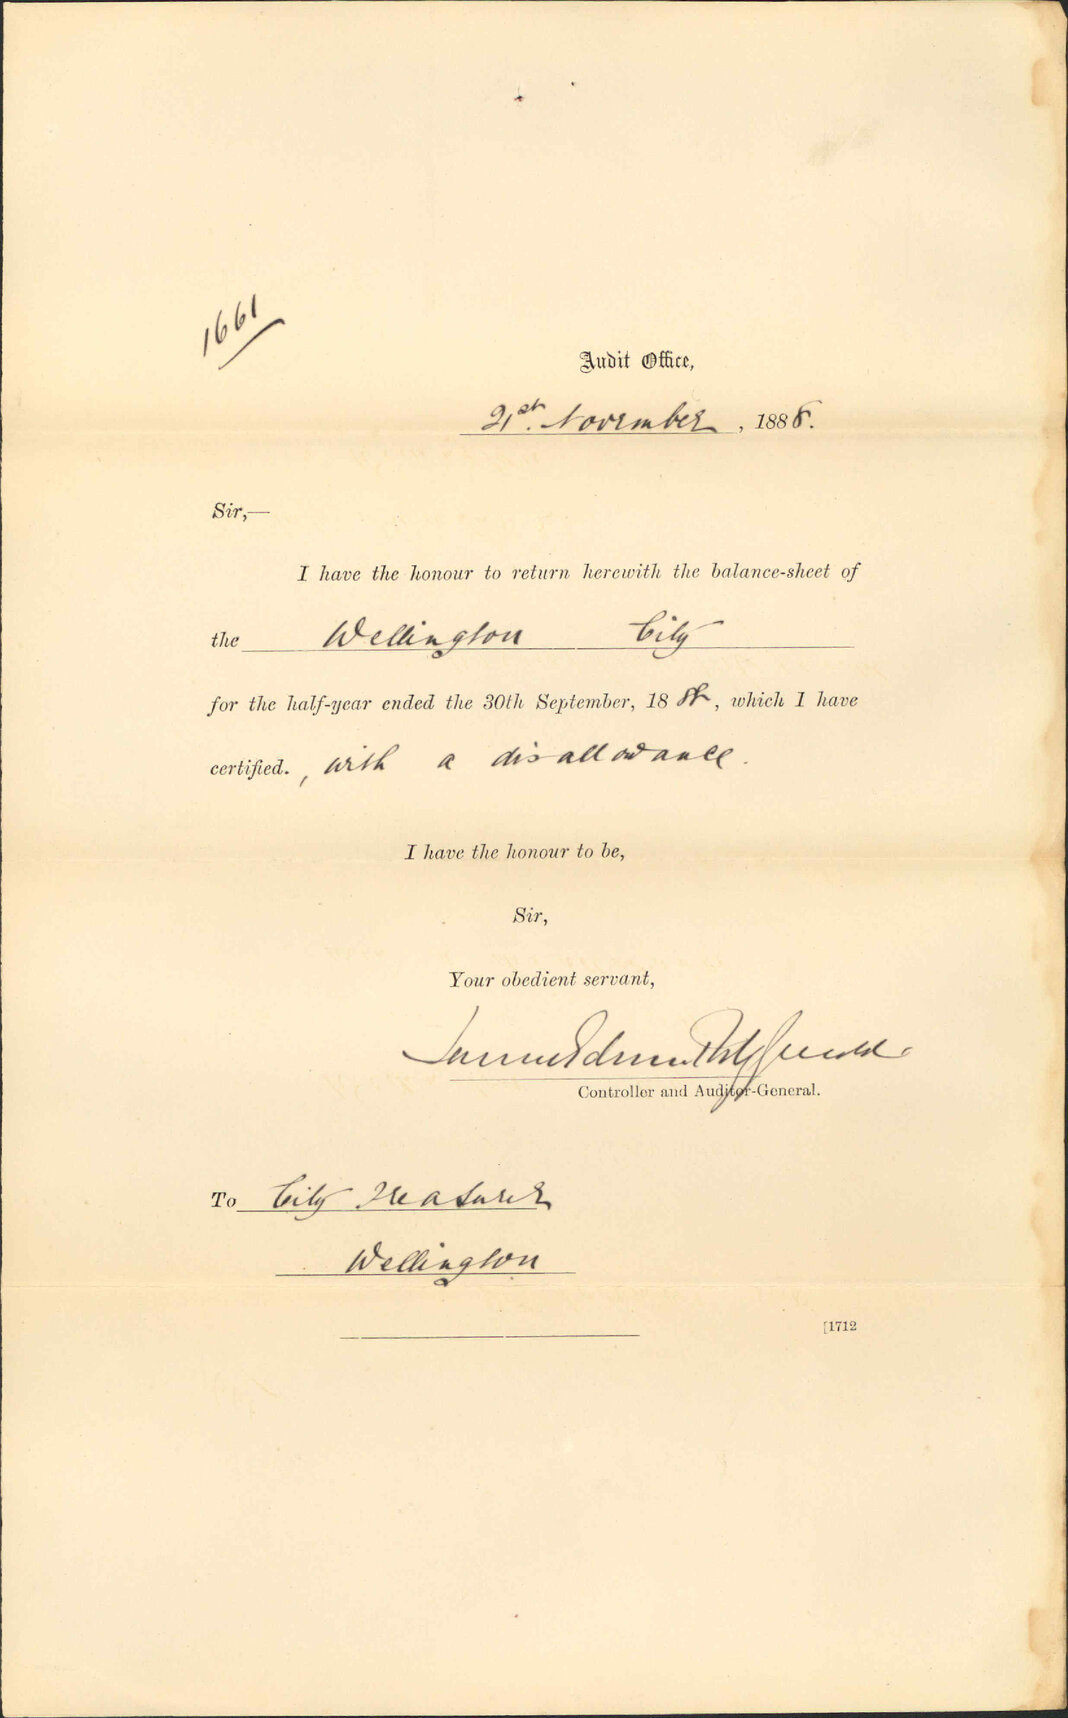 1661
Audit Office,
21st. November, 1888.
Sir,—
I have the honour to return herewith the balance-sheet of
the Wellington City
for the half-year ended the 30th September, 1888, which I have
certified., with a disallowance.
I have the honour to be,
Sir,
Your obedient servant,
Controller and Auditor-General.
To City Treasurer
Wellington
[1712